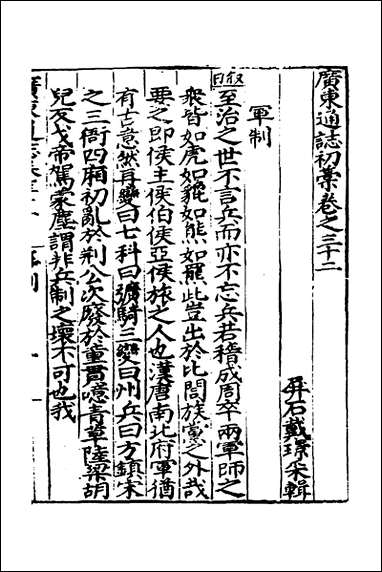 廣東通誌初藳卷之三十二
屏石戴璟采輯
軍制
叙曰至治之世不言兵而亦不忘兵若稽成周卒兩軍師之
衆皆如虎如貔如熊如羆此豈出於比閭族黨之外哉
要之即侯主侯伯侯亞侯旅之人也漢唐南北府軍猶
有古意然再變曰七科曰彍騎三變曰州兵曰方鎮宋
之三衙四廂初亂於荆公次廢於童貫噫青草陸梁胡
兒反戈帝駕蒙塵謂非兵制之壞不可也我